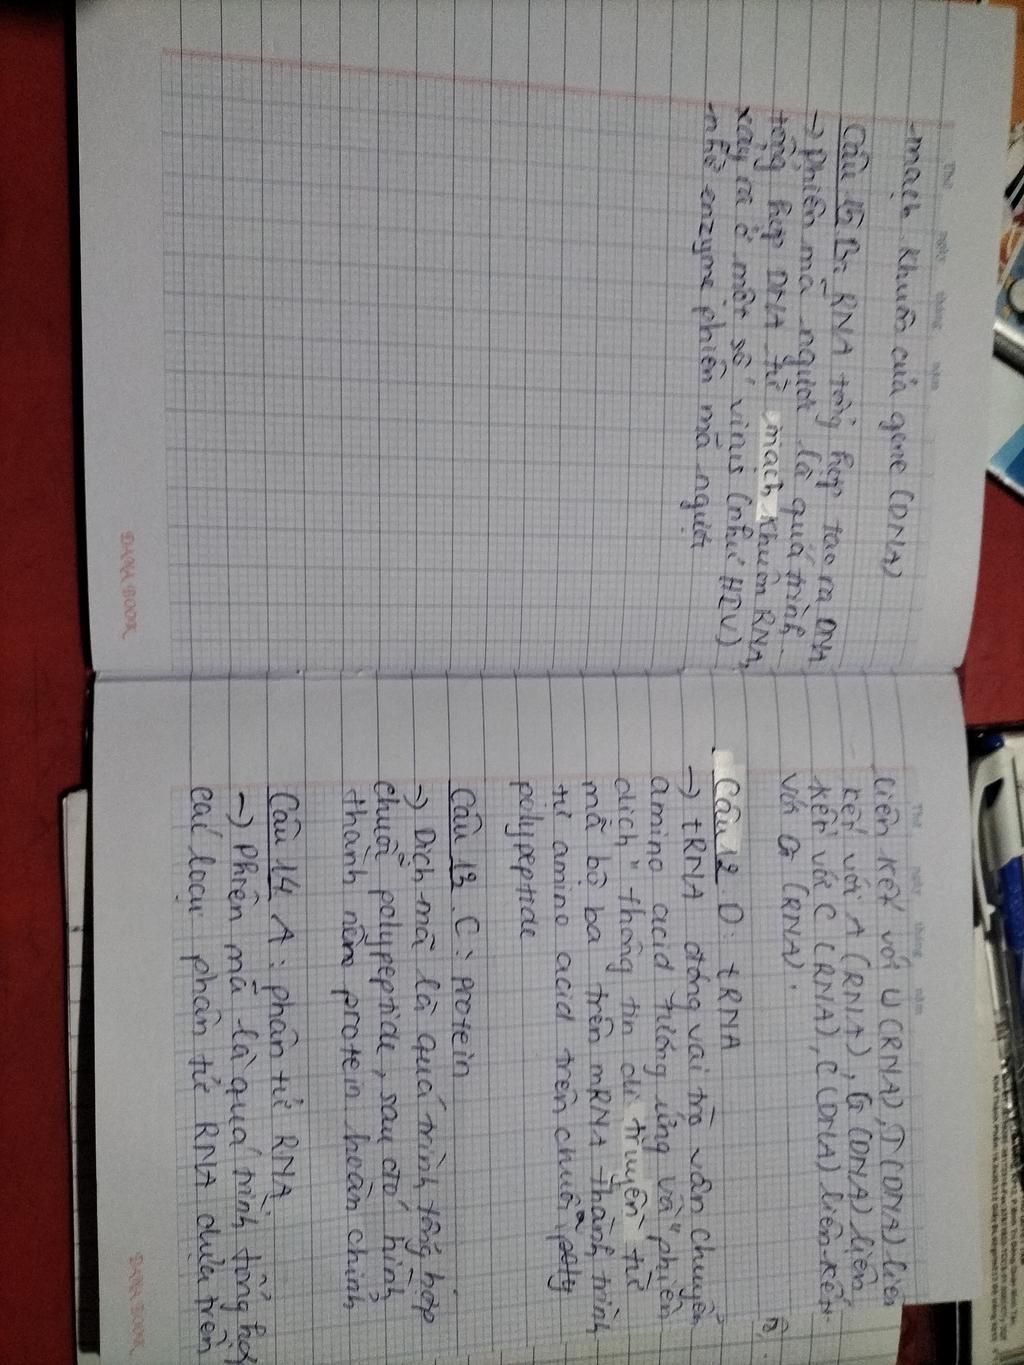 Thứ ngày tháng năm
liên kết với U (RNA), T (DNA) liên
kết với A (RNA), G (DNA) liên
kết với C (RNA), C (DNA) liên kết
với G (RNA).
Câu 12 D: tRNA
-> tRNA đóng vai trò vận chuyển
amino acid tương ứng và "phiên
dịch" thông tin di truyền từ
mã bộ ba trên mRNA thành trình
tự amino acid trên chuỗi poly
polypeptide
Câu 13. C: Protein
-> Dịch mã là quá trình tổng hợp
chuỗi polypeptide, sau đó hình
thành nên protein hoàn chỉnh
Câu 14 A: phân tử RNA
-> Phiên mã là quá trình tổng hợp
các loại phân tử RNA dựa trên
DANA BOOK
Thứ ngày tháng năm
-mạch khuôn của gene (DNA)
Câu 15 B: RNA tổng hợp tạo ra DNA
-> phiên mã ngược là quá trình
tổng hợp DNA từ mạch khuôn RNA,
xảy ra ở một số virus (như HIV)
nhờ enzyme phiên mã ngược
DANA BOOK